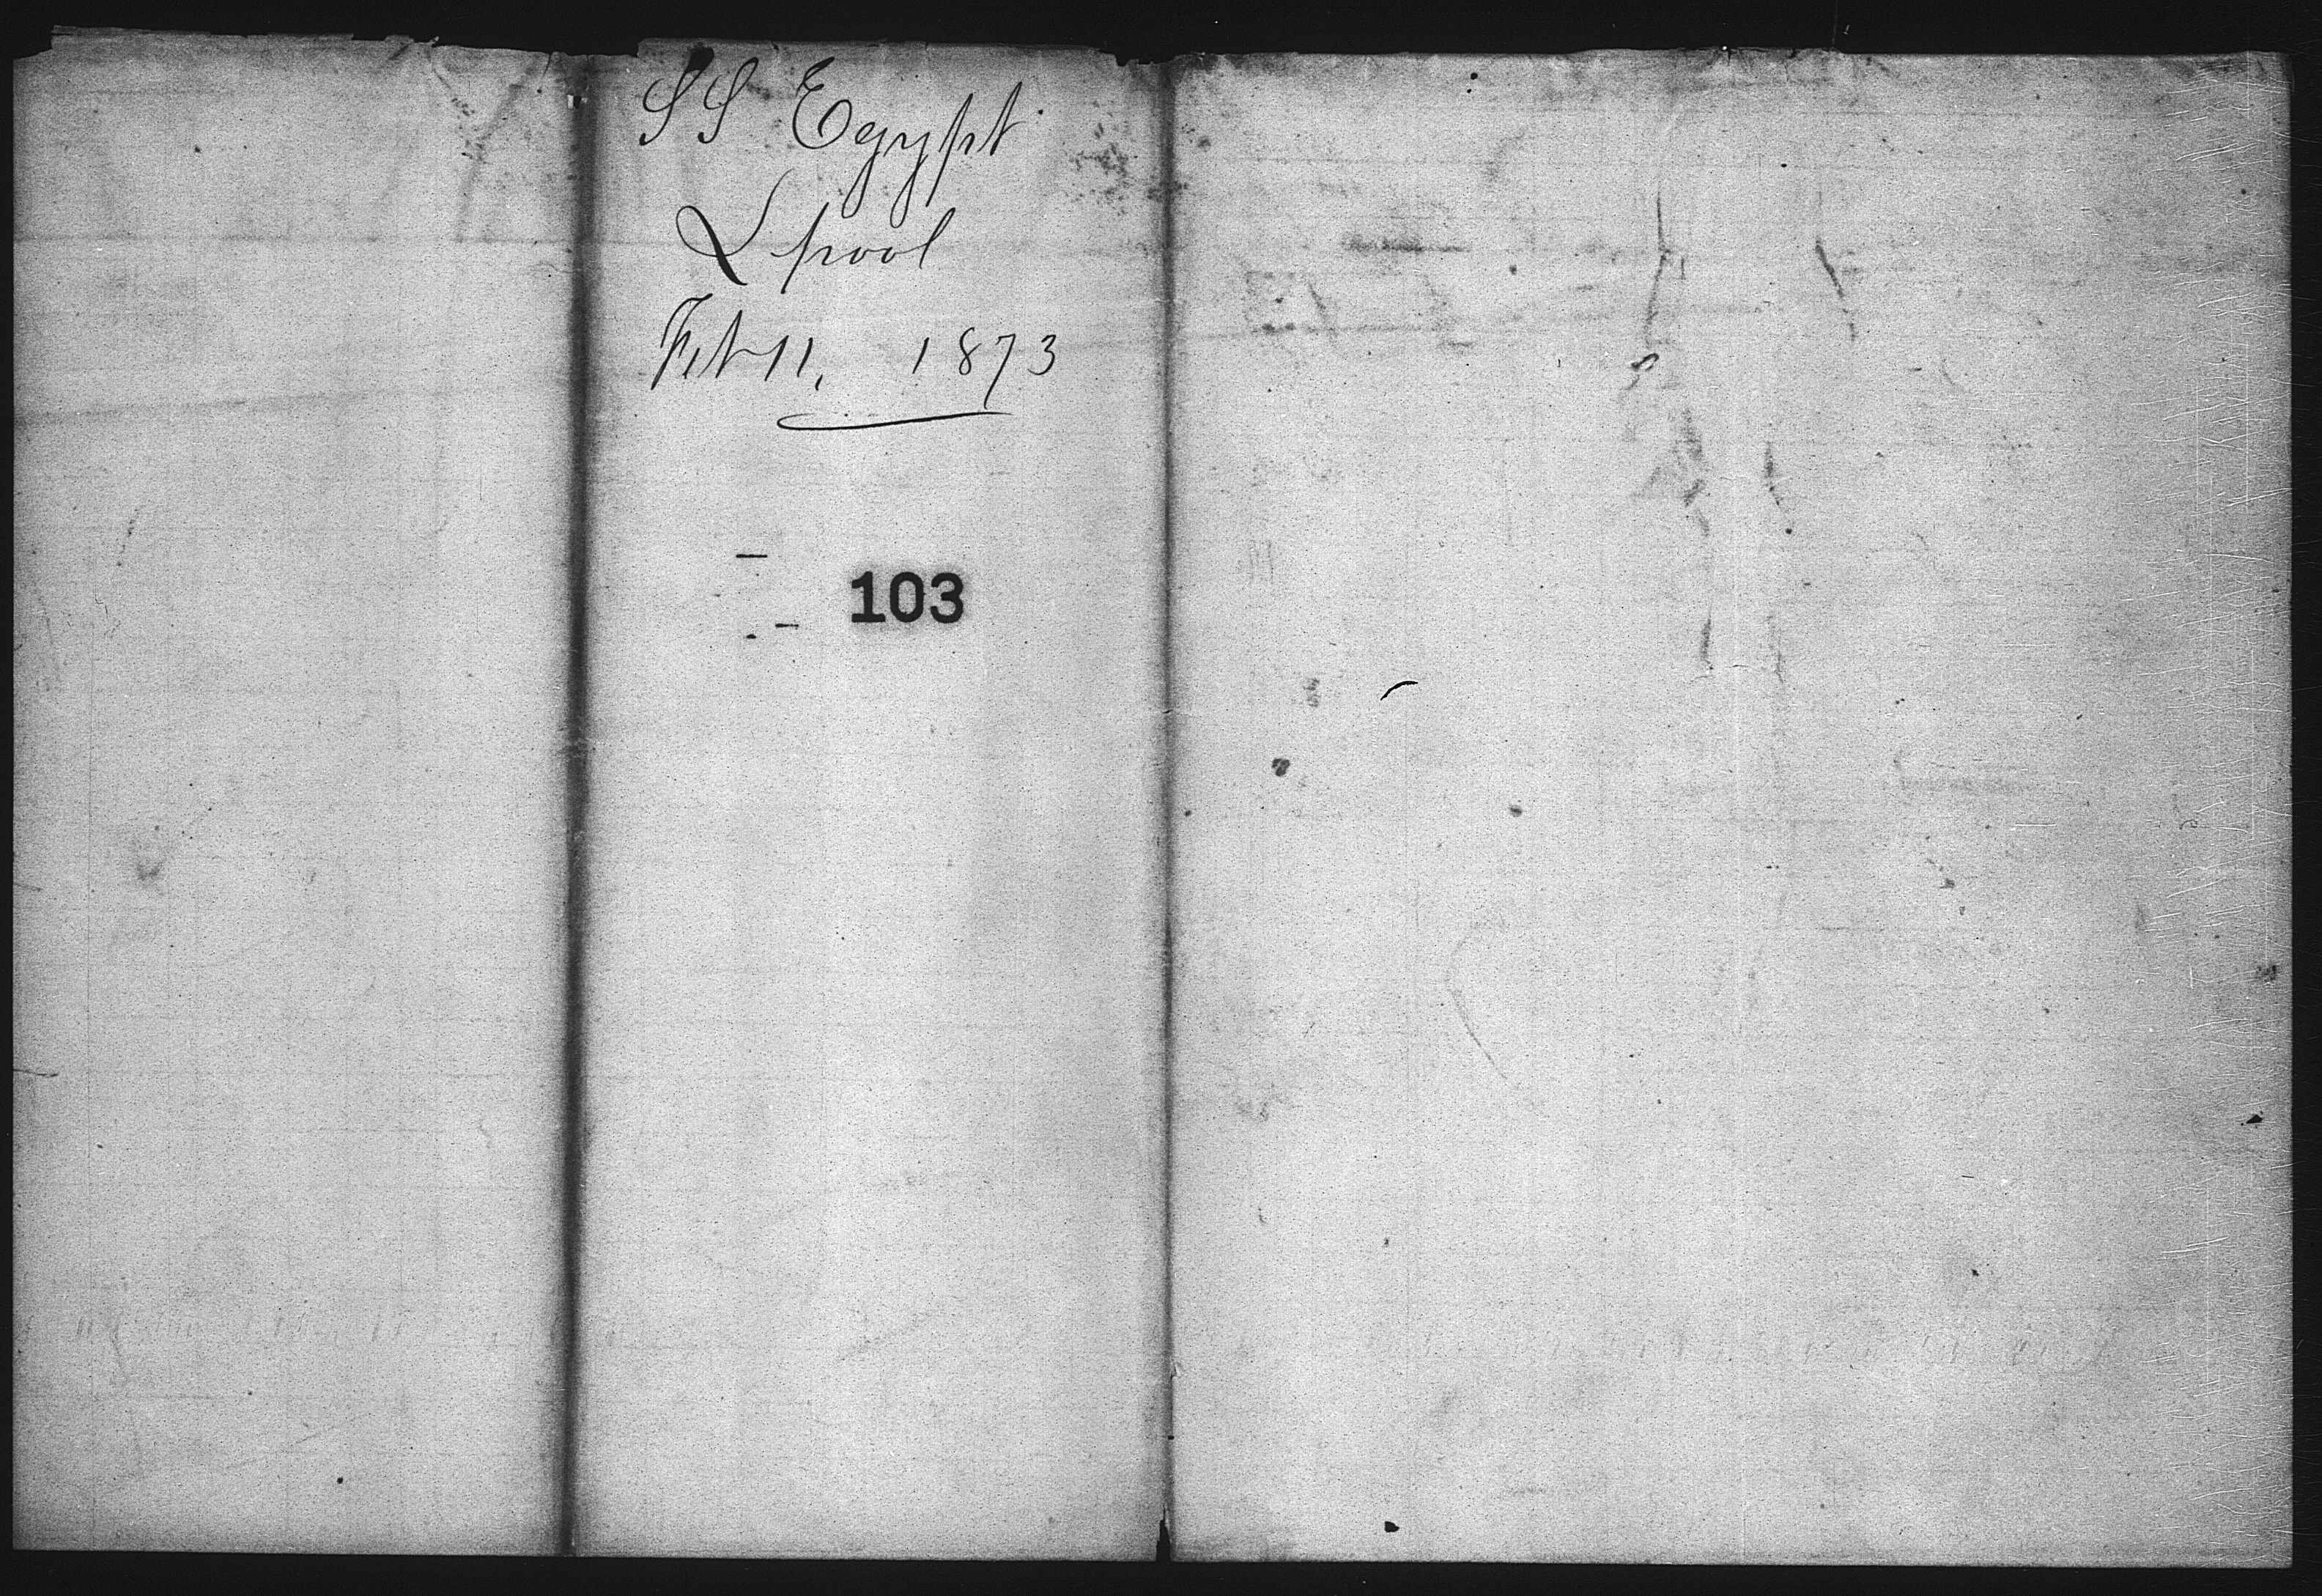 SS Egypt
Lpool
Feb 11, 1873
103